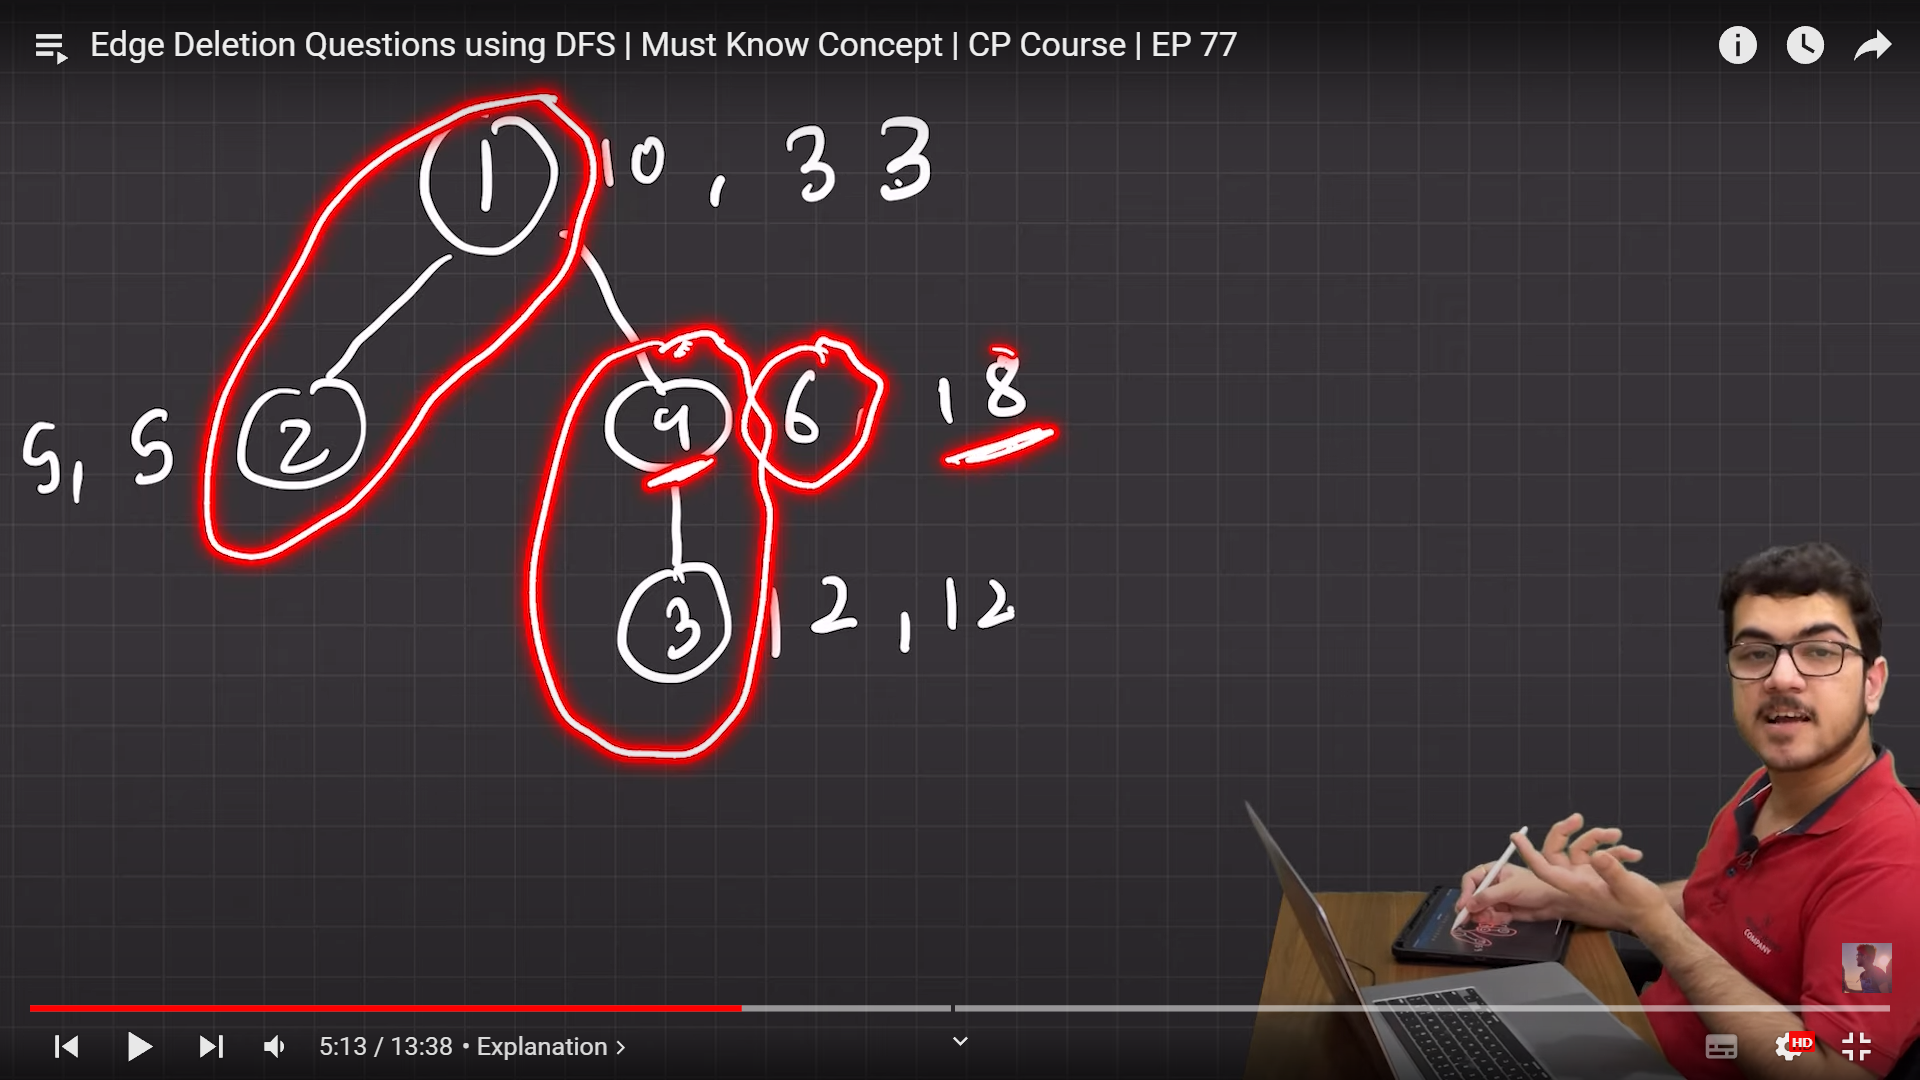 Edge Deletion Questions using DFS | Must Know Concept | CP Course | EP 77
1 10, 33
5, 5 2 4 6 18
3 12, 12
COMPANY
5:13 / 13:38 • Explanation >
HD